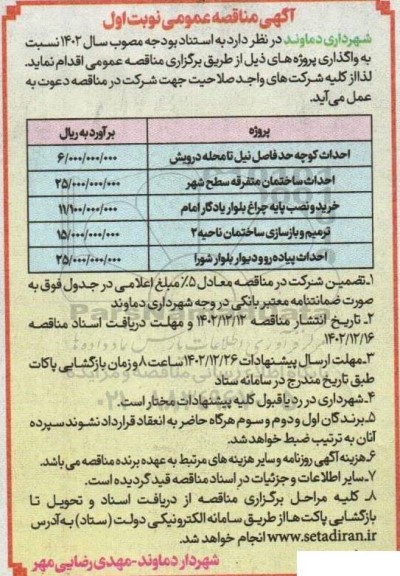 آگهی مناقصه عمومی نوبت اول
شهرداری دماوند در نظر دارد به استناد بودجه مصوب سال ۱۴۰۲ نسبت
به واگذاری پروژه های ذیل از طریق برگزاری مناقصه عمومی اقدام نماید.
لذا از کلیه شرکت های واجد صلاحیت جهت شرکت در مناقصه دعوت به
عمل می آید.
پروژه برآورد به ریال
احداث کوچه حد فاصل نیل تا محله درویش ۶/۰۰۰/۰۰۰/۰۰۰
احداث ساختمان متفرقه سطح شهر ۲۵/۰۰۰/۰۰۰/۰۰۰
خرید و نصب پایه چراغ بلوار یادگار امام ۱۱/۱۰۰/۰۰۰/۰۰۰
ترمیم و بازسازی ساختمان ناحیه ۲ ۱۵/۰۰۰/۰۰۰/۰۰۰
احداث پیاده رو و دیوار بلوار شورا ۲۵/۰۰۰/۰۰۰/۰۰۰
۱ـ تضمین شرکت در مناقصه معادل ۵٪ مبلغ اعلامی در جدول فوق به
صورت ضمانتنامه معتبر بانکی در وجه شهرداری دماوند
۲ـ تاریخ انتشار مناقصه ۱۴۰۲/۱۲/۱۲ و مهلت دریافت اسناد مناقصه
۱۴۰۲/۱۲/۱۶
۳ـ مهلت ارسال پیشنهادات ۱۴۰۲/۱۲/۲۶ ساعت ۸ و زمان بازگشایی پاکات
طبق تاریخ مندرج در سامانه ستاد
۴ـ شهرداری در رد یا قبول کلیه پیشنهادات مختار است.
۵ـ برندگان اول و دوم و سوم هرگاه حاضر به انعقاد قرارداد نشوند سپرده
آنان به ترتیب ضبط خواهد شد.
۶ـ هزینه آگهی روزنامه و سایر هزینه های مرتبط به عهده برنده مناقصه می باشد.
۷ـ سایر اطلاعات و جزئیات در اسناد مناقصه قید گردیده است.
۸ـ کلیه مراحل برگزاری مناقصه از دریافت اسناد و تحویل تا
بازگشایی پاکت ها از طریق سامانه الکترونیکی دولت (ستاد) به آدرس
www.setadiran.ir انجام خواهد شد.
شهردار دماوند-مهدی رضایی مهر